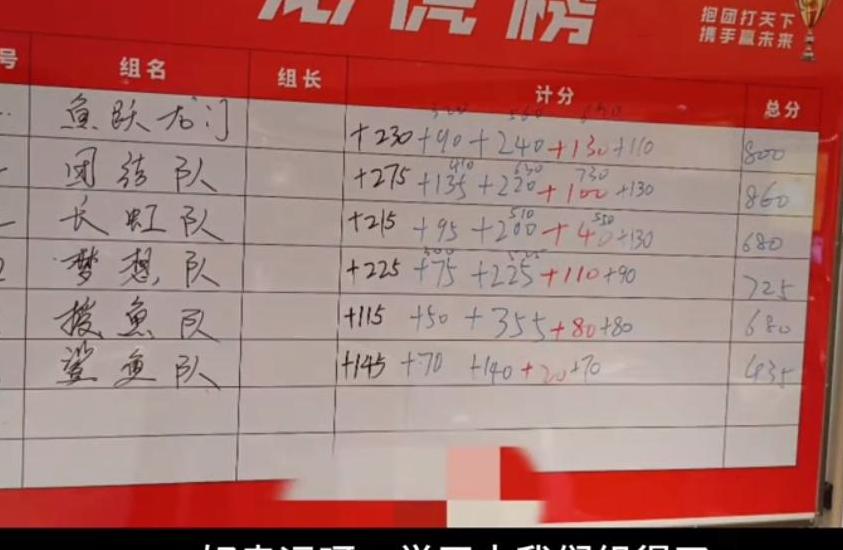 龙门虎榜
抱团打天下
携手赢未来
号 组名 组长 计分 总分
鱼跃龙门 +230 +90 +240 +130 +110 800
410 630 730
团结队 +275 +135 +220 +100 +130 860
510 550
长虹队 +215 +95 +200 +40 +130 680
梦想队 +225 +75 +225 +110 +90 725
鱼队 +115 +50 +355 +80 +80 680
鲨鱼队 +145 +70 +140 +20 +70 435